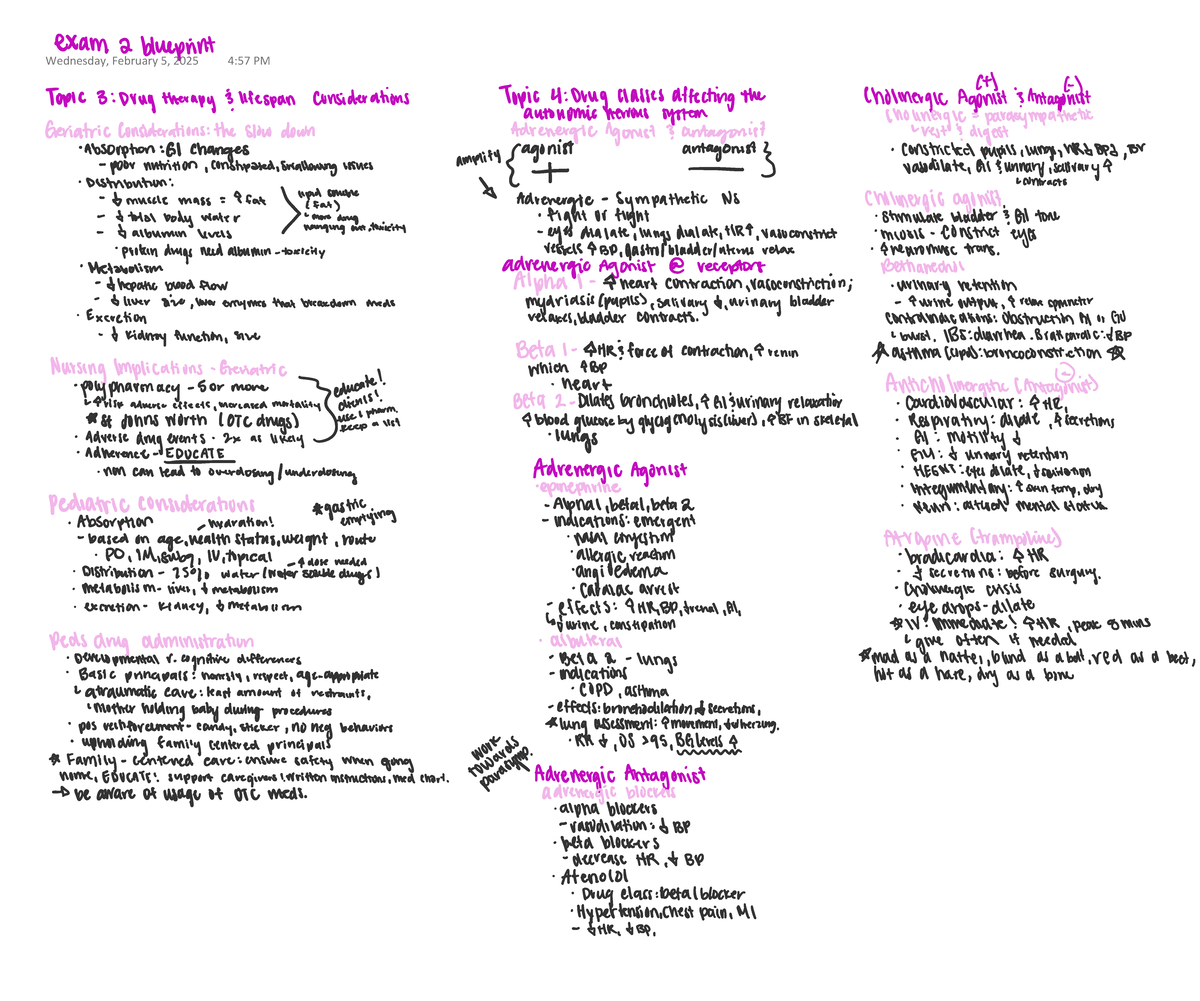 exam 2 blueprint
Wednesday, February 5, 2025 4:57 PM
Topic 3: Drug therapy & lifespan Considerations
Geriatric Considerations: the slow down
· Absorption: GI changes
- poor nutrition, constipated, swallowing issues
· Distribution:
- ↓ muscle mass = ↑ fat
- ↓ total body water
- ↓ albumin levels
lipid soluble
(fat)
↳ more drug
hanging out, toxicity
· protien drugs need albumin - toxicity
· Metabolism
- ↓ hepatic blood flow
- ↓ liver size, liver enzymes that breakdown meds
· Excretion
- ↓ kidney function, size
Nursing Implications - Geriatric
· polypharmacy - 5 or more
↳ ↑ risk adverse effects, increased mortality
* St Johns worth (OTC drugs)
· Adverse drug events - 2x as likely
· Adherence - EDUCATE
· non can lead to overdosing/underdosing
educate!
clients!
use 1 pharm.
keep a list
Pediatric considerations
*gastric
emptying
· Absorption - hydration!
- based on age, health status, weight, route
· PO, IM, subq, IV, topical
- ↑ dose needed
· Distribution - 75% water (water soluble drugs)
· metabolism - liver, ↓ metabolism
· excretion - kidney, ↓ metabolism
Peds drug administration
· Developmental & cognitive differences
· Basic principals: honesty, respect, age-appropriate
↳ atraumatic care: least amount of restraints,
↳ mother holding baby during procedures
· pos reinforcement - candy, sticker, no neg behaviors
· upholding family centered principals
* Family-centered care: ensure safety when going
home, EDUCATE! support caregivers! written instructions, med chart.
→ be aware of usage of OTC meds.
Topic 4: Drug classes affecting the
autonomic nervous system
Adrenergic Agonist & antagonist
amplify
agonist antagonist
+ —
Adrenergic - Sympathetic NS
· fight or flight
- eyes dialate, lungs dialate, HR↑, vasoconstrict
vessels ↑ BP, gastro/bladder/uterus relax
adrenergic Agonist @ receptors
Alpha 1 - ↑ heart contraction, vasoconstriction;
mydriasis (pupils), salivary ↓, urinary bladder
relaxes, bladder contracts.
Beta 1 - ↑HR & force of contraction, ↑ renin
which ↑BP
· heart
Beta 2 - Dilates bronchioles, ↑ GI & urinary relaxation
↑ blood glucose by glycogenolysis (liver), ↑ BF in skeletal
· lungs
Adrenergic Agonist
· epinephrine
- Alpha1, beta1, beta 2
- indications: emergent
· nasal congestion
· allergic reaction
· angiedema
· cardiac arrest
- effects: ↑ HR, BP, ↓ renal, GI,
↳ ↓ urine, constipation
· albuteral
- Beta 2 - lungs
- indications
· COPD, asthma
- effects: bronchodilation ↓ secretions,
* lung assessment: ↑ movement, ↓ wheezing.
· RR ↓, OS >95, BG levels ↑
work
towards
parasymp.
Adrenergic Antagonist
adrenergic blockers
· alpha blockers
- vasodilation: ↓ BP
· beta blockers
- decrease HR, ↓ BP
· Atenolol
· Drug class: beta1 blocker
· Hypertension, Chest pain, MI
- ↓HR, ↓BP,
(+) (-)
Cholinergic Agonist & Antagonist
Cholinergic = parasympathetic
↳ rest & digest
· constricted pupils, lungs, HR↓ BP↓, BV
vasodilate, GI & urinary, salivary ↑
↳ contracts
Cholinergic agonist
· Stimulate bladder & GI tone
· miosis - constrict eyes
· ↑ neuromusc trans.
Bethanechol
· urinary retention
- ↑ urine output, ↑ relax sphincter
Contraindications: Obstruction GI or GU
↳ burst, IBS: diarrhea. Bradicardic: ↓BP
* asthma (COPD): broncoconstriction *
(-)
Anticholinergics (Antagonist)
· Cardiovascular: ↑ HR,
· Respiratiry: dilate, ↑ secretions
· GI: motility ↓
· GU: ↓ urinary retention
· HEENT: eyes dilate, ↓ salivation
· Integumentary: ↑ skin temp, dry
· Neuro: altered mental status
Atropine (trampoline)
· bradicardia: ↑ HR
· ↓ secretions: before surgury.
· Cholinergic crisis
· eye drops - dilate
* IV: immediate! ↑HR, peak 8 mins
↳ give often if needed
* mad as a hatter, blind as a bat, red as a beet,
hot as a hare, dry as a bone